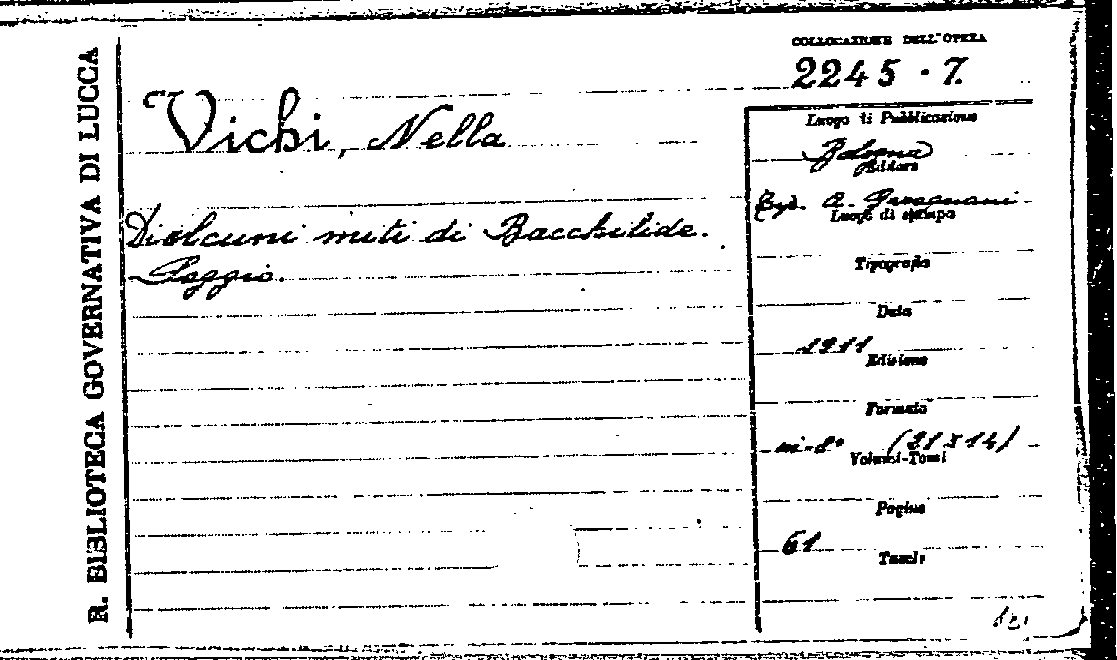 R. BIBLIOTECA GOVERNATIVA DI LUCCA
COLLOCAZIONE DELL'OPERA
2245 . 7.
Vichi, Nella
Di alcuni miti di Bacchilide.
Saggio.
Luogo di Pubblicazione
Bologna
Editore
A. Garagnani
Luogo di stampa
Tipografia
Data
1911
Edizione
Formato
in-8° (21 x 14)
Volumi-Tomi
Pagine
61
Tavole